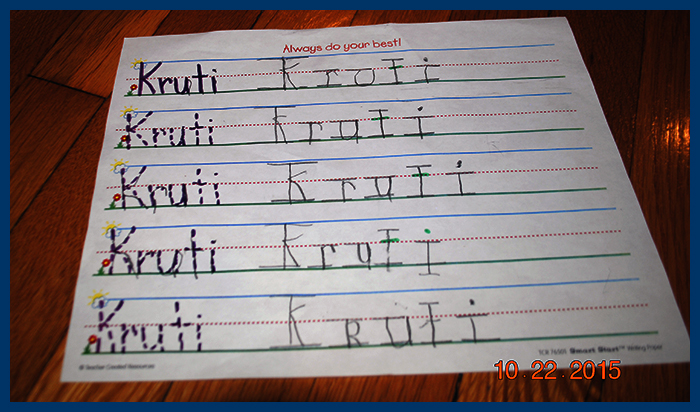 Always do your best!
Kruti Kruti
Kruti Kruti
Kruti Kruti
Kruti Kruti
Kruti KRuTi
© Teacher Created Resources
TCR 76501 Smart Start™ Writing Paper
10.22.2015